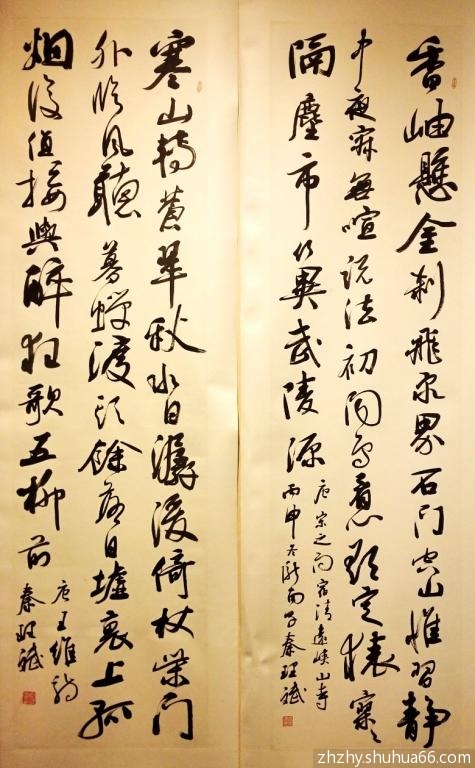 香岫懸金刹飛泉界石门空山惟習静
中夜寂無喧说法初闻鸟看心欲定猿寥々
隔塵市何異武陵源
唐宋之问宿清遠峡山寺
丙申冬於南 秦 斌
寒山轉蒼翠秋水日潺湲倚杖柴门
外临风聽暮蝉渡头餘落日墟裏上孤
烟復值接輿醉狂歌五柳前
唐王维诗
秦 斌
zhzhy.shuhua66.com